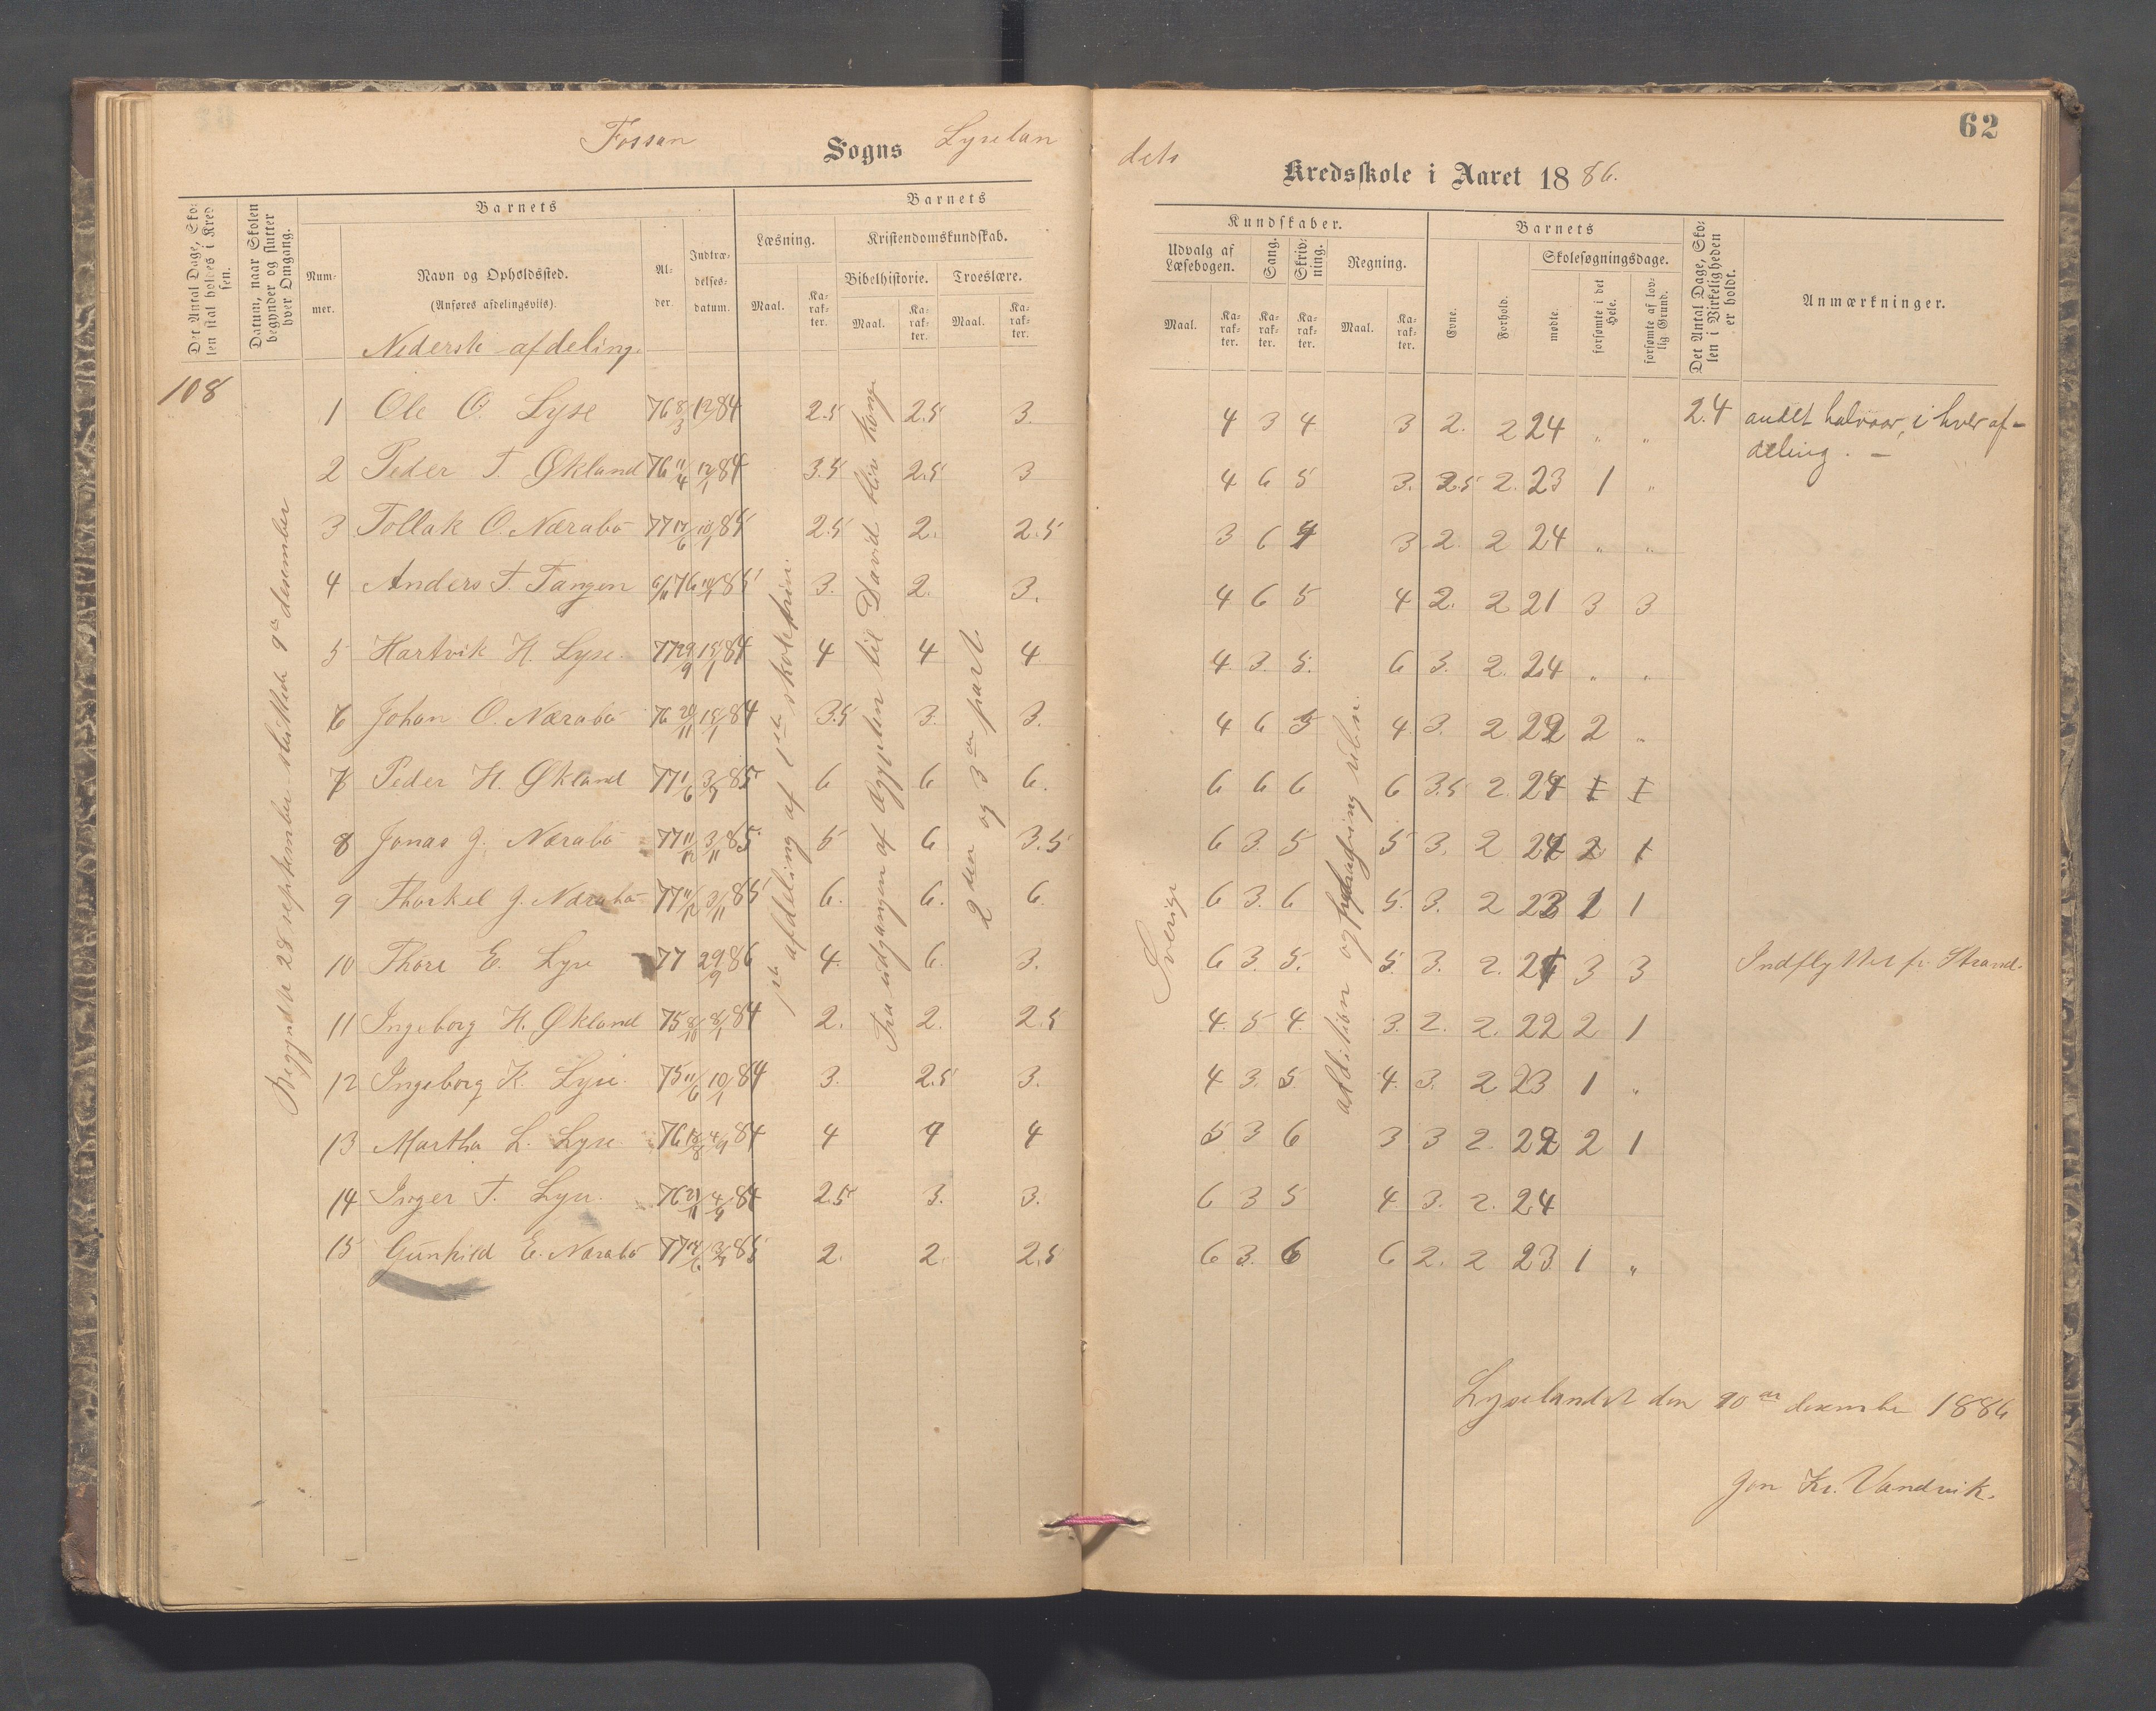 62
Fossan Sogns Lyselan
dets Kredsskole i Aaret 1886.
Det Antal Dage, Skolen skal holdes i Kredsen.
Datum, naar Skolen begynder og slutter hver Omgang.
Barnets
Nummer.
Navn og Opholdssted.
(Anføres afdelingsviis).
Alder.
Indtrædelsesdatum.
Barnets
Læsning.
Maal.
Karakter.
Kristendomskundskab.
Bibelhistorie.
Maal.
Karakter.
Troeslære.
Maal.
Karakter.
Kundskaber.
Udvalg af Læsebogen.
Maal.
Karakter.
Sang.
Karakter.
Skrivning.
Karakter.
Regning.
Maal.
Karakter.
Barnets
Evne.
Forhold.
Skolesøgningsdage.
mødte.
forsømte i det Hele.
forsømte af lovlig Grund.
Det Antal Dage, Skolen i Virkeligheden er holdt.
Anmærkninger.
Nederste afdeling.
108
Begyndte 28 september sluttede 9de desember
1ste afdeling af 1ste skoletrin.
Fra udgangen af Ægypten til David blir konge
2den og 3die part
Sverige
addition og
1 Ole O. Lyse 76 8/3 12/1 84 2.5 2.5 3. 4 3 4 3 2. 2 24 „ „ 24 andet halvaar, i hver af-
deling. —
2 Peder T. Økland 76 11/4 12/1 84 3.5 2.5 3 4 6 5 3. 2.5 2. 23 1 „
3 Tollak O. Nærabø 77 17/6 10/1 85 2.5 2. 2.5 3 6 4 3 2. 2 24 „ „
4 Anders T. Tangen 76 85 3. 2. 3. 4 6 5 4 2. 2 21 3 3
5 Hartvik H. Lyse 77 29/9 15/1 84 4 4 4 4 3. 5. 6 3. 2. 24 „ „
6 Johan O. Nærabø 76 29/11 15/1 84 3.5 3. 3. 4 6 5 4. 3. 2 22 2 „
7 Peder H. Økland 77 1/6 85 6 6 6. 6 6 6 6 3.5 2. 24
8 Jonas J. Nærabø 77 11/12 3/11 85 5 6 3.5 6 3. 5 5 3. 2 24
9 Thorkel J. Nærabø 77 11/12 3/11 85 6. 6. 6. 6 3. 6 5. 3. 2 23 1 1
10 Thore E. Lyse 77 29/9 86 4. 6. 3. 6 3. 5. 5. 3. 2. 21 3 3 Indflyttet fr. Strand.
11 Ingeborg H. Økland 75 8/10 8/1 84 2. 2. 2.5 4. 5 4. 3. 2. 2. 22 2 1
12 Ingeborg K. Lyse. 75 11/6 10/1 84 3. 2.5 3. 4 3. 5. 4. 3. 2 23 1 „
13 Martha L. Lyse. 76 18/8 4/9 84 4 4 4 5 3 6 3 3 2. 22 2 1
14 Inger T. Lyse. 76 21/11 4/9 84 2.5 3. 3. 6 3 5 4. 3. 2. 24
15 Gunhild E. Nærabø 77 85 2. 2. 2.5 6 3. 6 6 2. 2 23 1 „
Lyselandet den 10de desember 1886
Jon Kr. Vandvik.